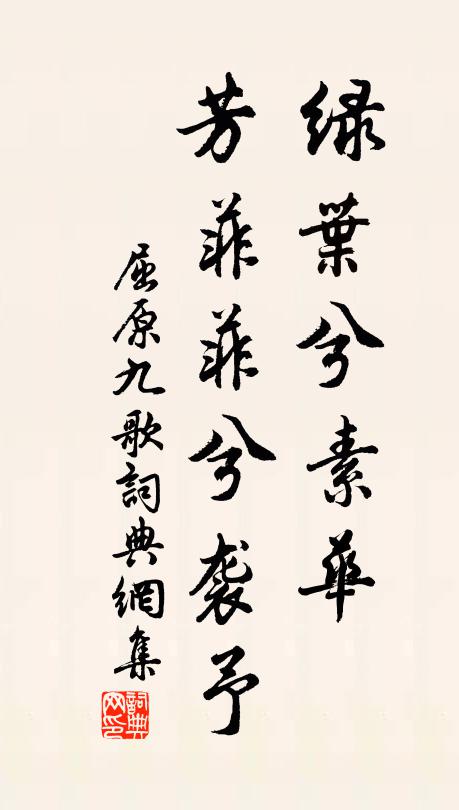 绿葉兮素華
芳菲菲兮袭予
屈原九歌詞典網集
詞典网印